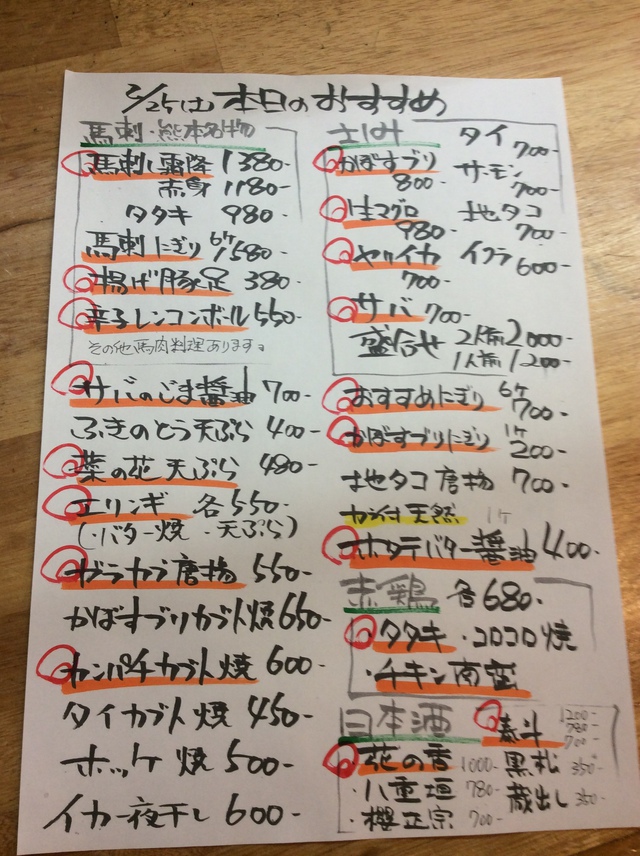 2/25(土) 本日のおすすめ
馬刺・熊本名物
馬刺し霜降 1380-
赤身 1180-
タタキ 980-
馬刺にぎり 6ケ 1580-
揚げ豚足 380-
辛子レンコンボール 550-
その他馬肉料理あります。
サバのごま醤油 700-
ふきのとう天ぷら 400-
菜の花天ぷら 480-
エリンギ 各550-
(・バター焼 ・天ぷら)
ガラカブ唐揚 550-
かぼすブリカブト焼 650-
カンパチカブト焼 600-
タイカブト焼 450-
ホッケ焼 500-
イカ一夜干し 600-
さしみ
かぼすブリ 800-
生マグロ 980-
ヤリイカ 700-
サバ 700-
タイ 700-
サーモン 700-
地タコ 700-
イクラ 600-
盛合せ 2人前 2000-
1人前 1200-
おすすめにぎり 6ケ 700-
かぼすブリにぎり 1ケ 200-
地タコ唐揚 700-
カラ付天然 1ケ
ホタテバター醤油 400-
赤鶏 各680-
・タタキ ・コロコロ焼
・チキン南蛮
日本酒
泰斗 1200- 780- 700-
・花の香 1000-
・八重垣 780-
・櫻正宗 700-
黒松 350-
蔵出し 350-